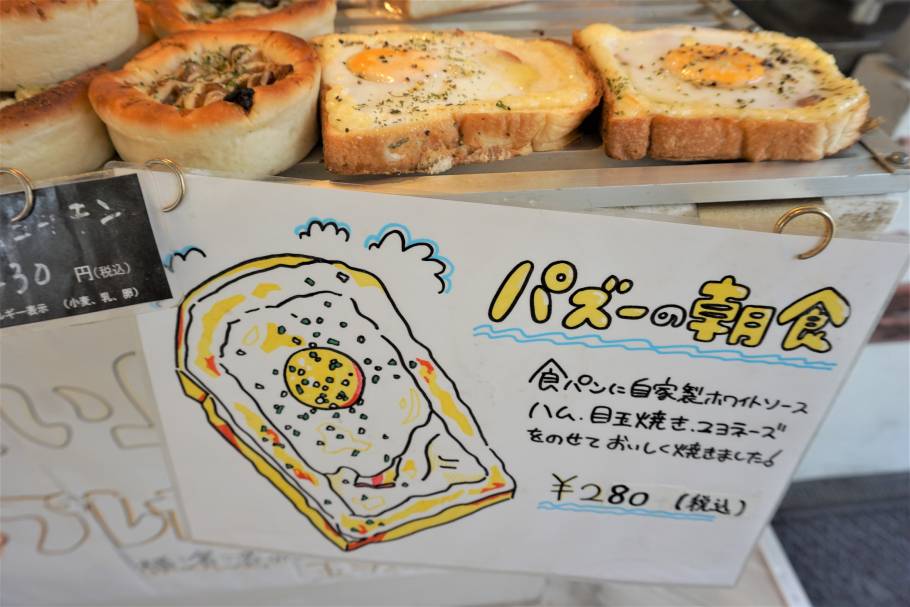 パズーの朝食
食パンに自家製ホワイトソース
ハム、目玉焼き、マヨネーズ
をのせておいしく焼きました!
¥280 (税込)
30 円(税込)
ギー表示 (小麦、乳、卵)